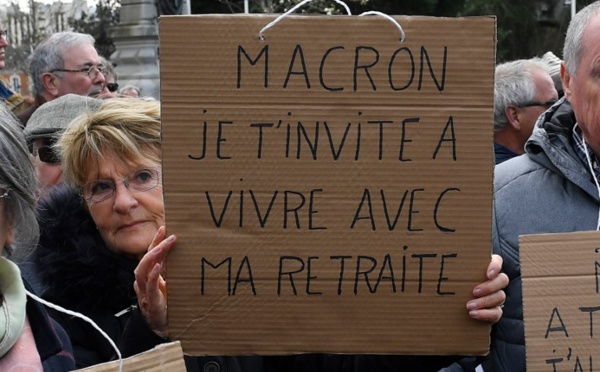 MACRON
JE T'INVITE A
VIVRE AVEC
MA RETRAITE
A T